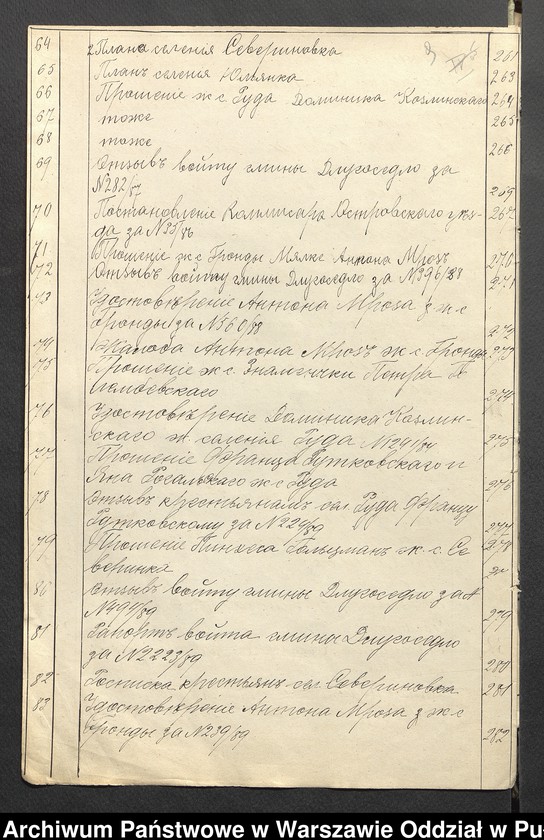 64 2 Плана селения Севериновка 261
65 Планъ селения Юльянка 263
66 Прошение ж с Гуда Доминика Козлинскаго 264
67 тоже 265
68 тоже 266
69 Отзывъ войту гмины Длугоседло за
№282/87 209
70 Постановление Коммисара Островскаго уез-
да за №35/86 267
71 Прошение ж с Гронды Мялке Антона Мрозъ 270
72 Отзывъ войту гмины Длугоседло за №396/88 271
73 Удостовѣрение Антона Мроза з ж с
Гронды за №560/89 272
74 Жалоба Антона Мрозъ ж с Гронды 273
75 Прошение ж с Знаменчки Петра
274
76 Удостовѣрение Доминика Козлин-
скаго ж селения Гуда №241/84 275
77 Прошение Франца Гутковскаго и
Яна Рогальскаго ж с Гуда 276
78 Отзывъ крестьянамъ сел Гуда Францу
Гутковскому за №224/89 277
79 Прошение Пинхеса Гольцманъ ж с Се 278
веринка
80 Отзывъ войту гмины Длугоседло за
№491/89 279
81 Рапортъ войта гмины Длугоседло
за №2223/89 280
82 Росписка крестьян сел Севериновка 281
83 Удостовѣрение Антона Мроза з ж с
Гронды за №239/89 282
Archiwum Państwowe w Warszawie Oddział w Pu